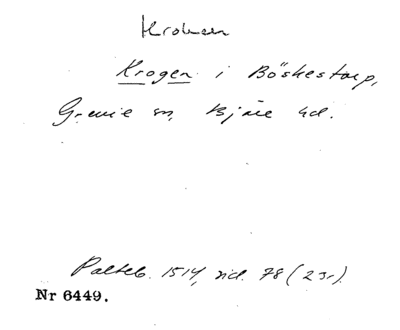 Krogen i Böskestorp,
Grevie sn, Bjäre hd.
Palteb. 1514, sid. 78 (2 gr).
Nr 6449.